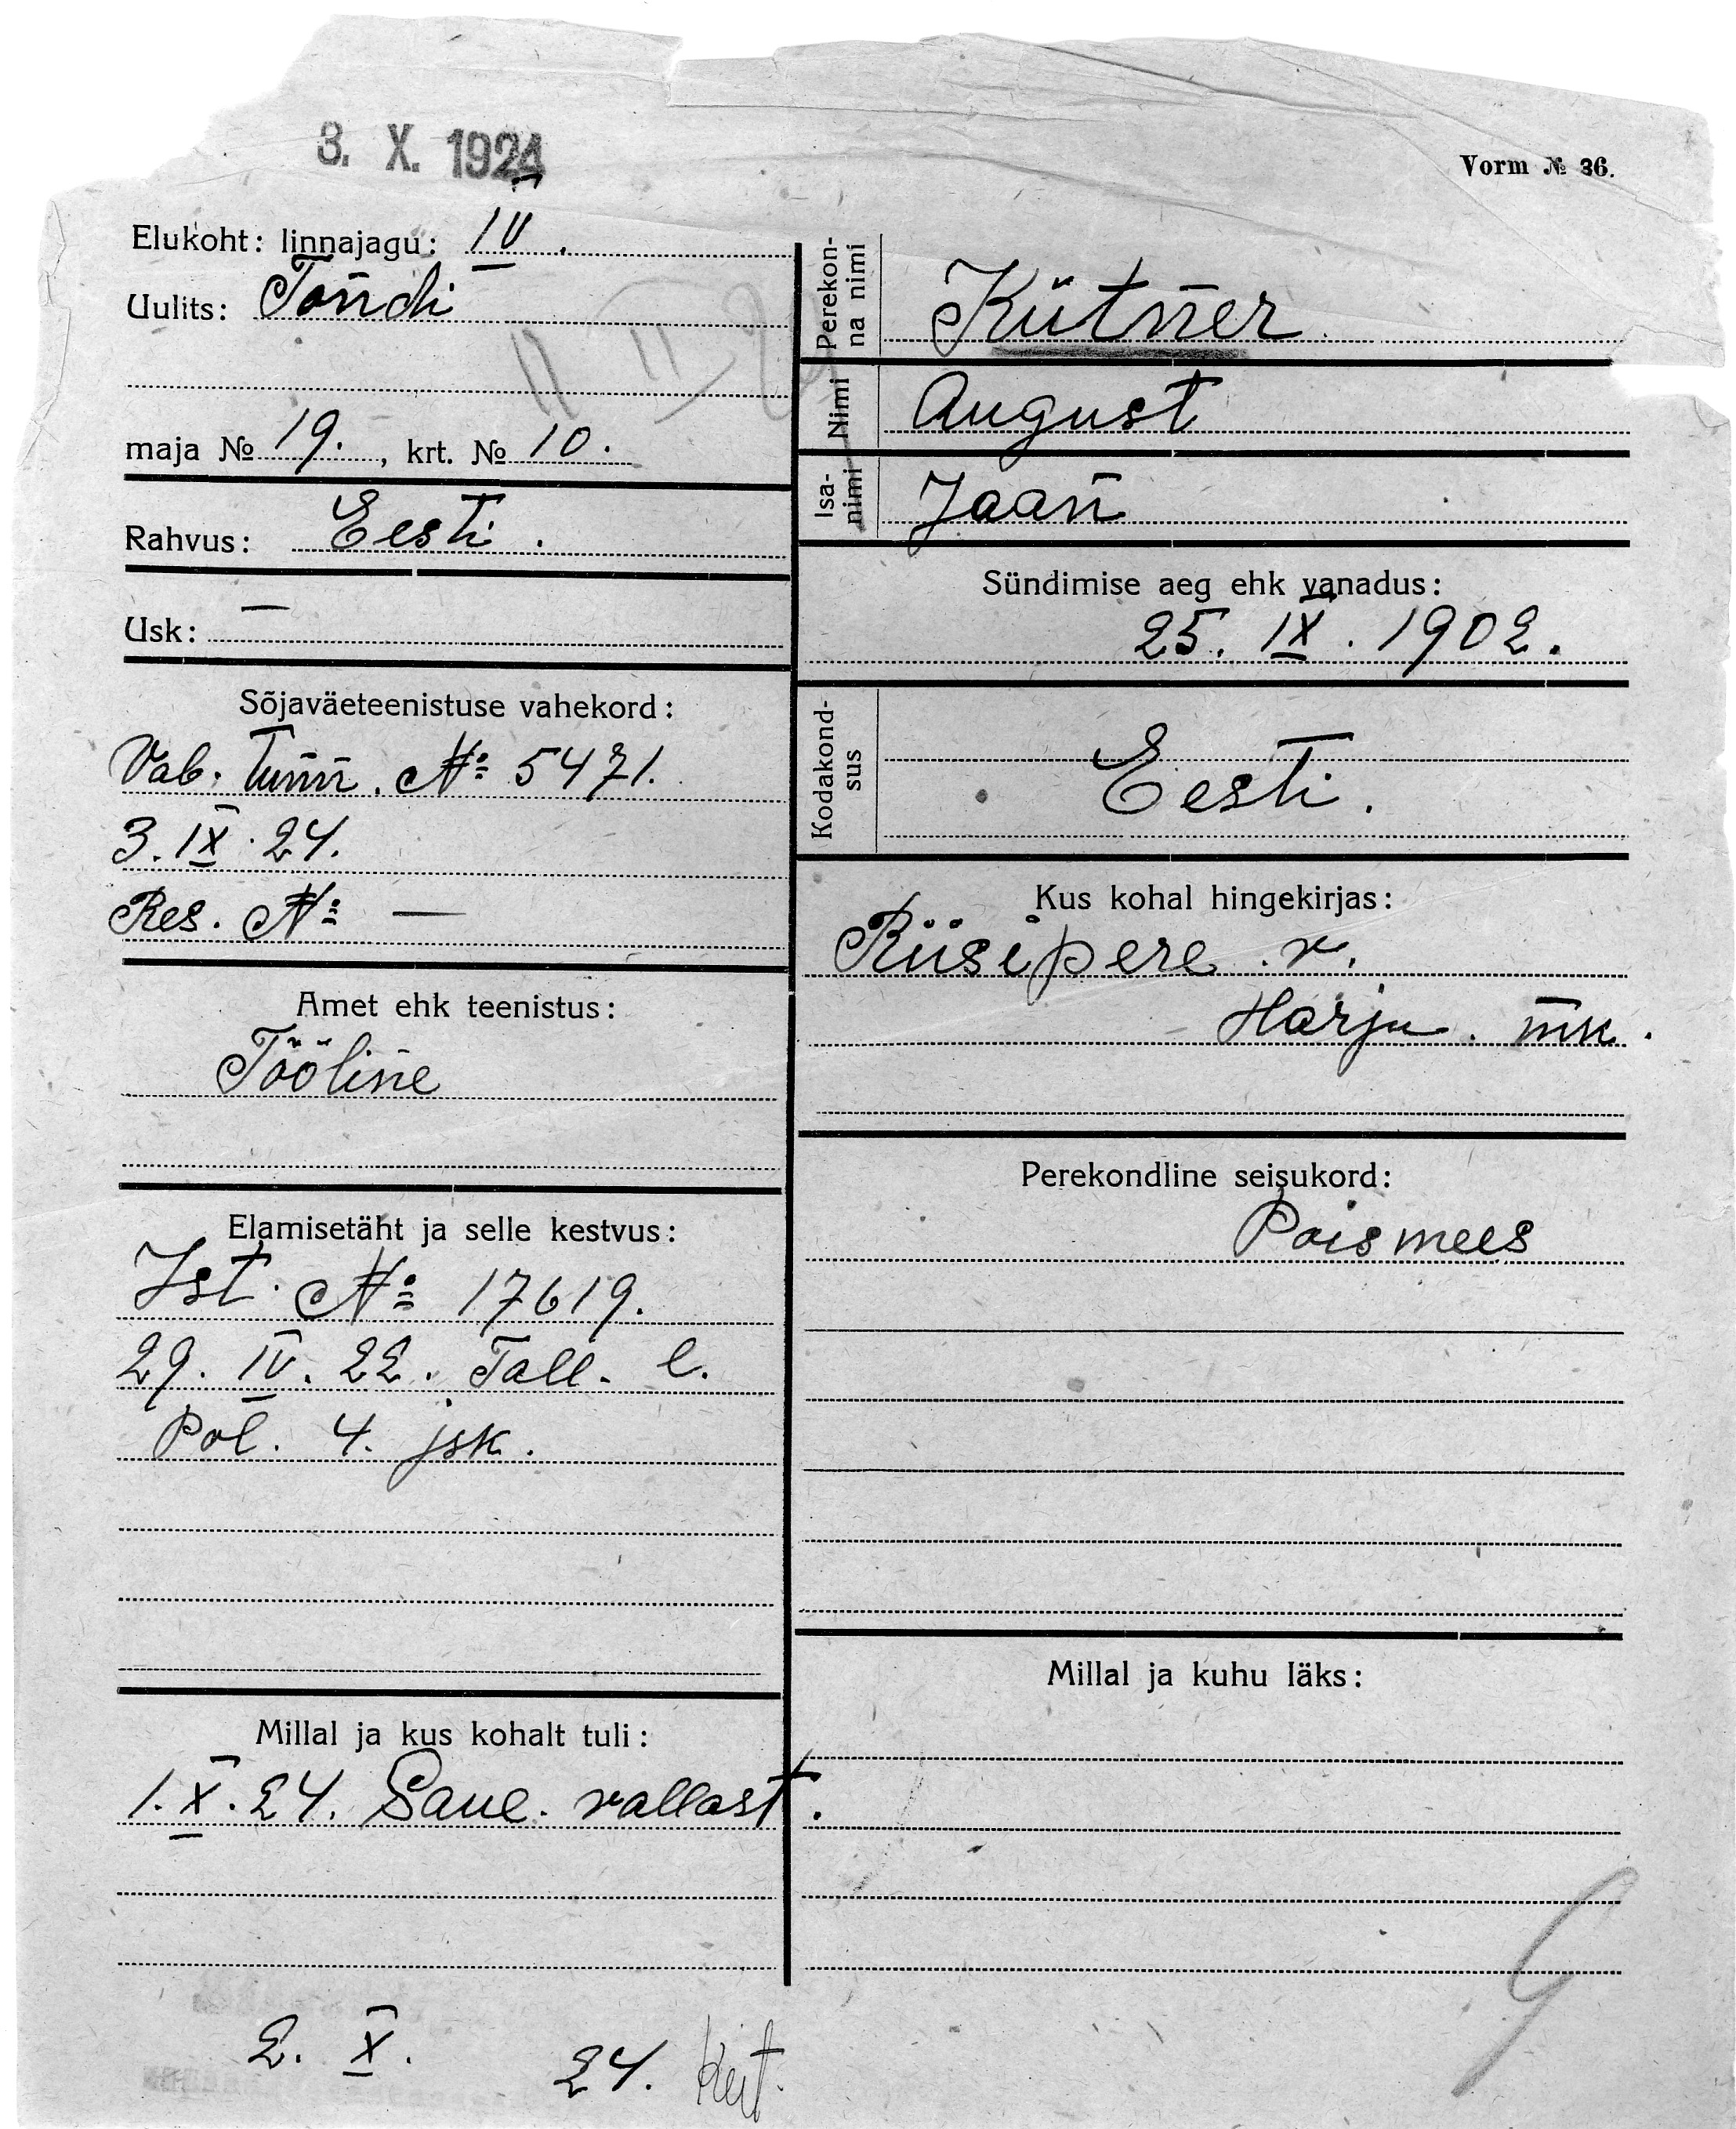 3. X. 1924
Vorm № 36.
Elukoht: linnajagu: IV.
Uulits: Tondi
maja № 19., krt. № 10.
Rahvus: Eesti.
Usk: —
Sõjaväeteenistuse vahekord:
Vab. tunn. № 5471.
3. IX. 24.
Res. № —
Amet ehk teenistus:
Tööline
Elamisetäht ja selle kestvus:
Ist. № 17619.
29. IV. 22. Tall. l.
Pol. 4. jsk.
Millal ja kus kohalt tuli:
1. X. 24. Saue. vallast.
Perekon-
na nimi
Kütner
Nimi
August
Isa-
nimi
Jaan
Sündimise aeg ehk vanadus:
25. IX. 1902.
Kodakond-
sus
Eesti.
Kus kohal hingekirjas:
Riisipere. v.
Harju. mk.
Perekondline seisukord:
Poismees
Millal ja kuhu läks:
2. X. 24.